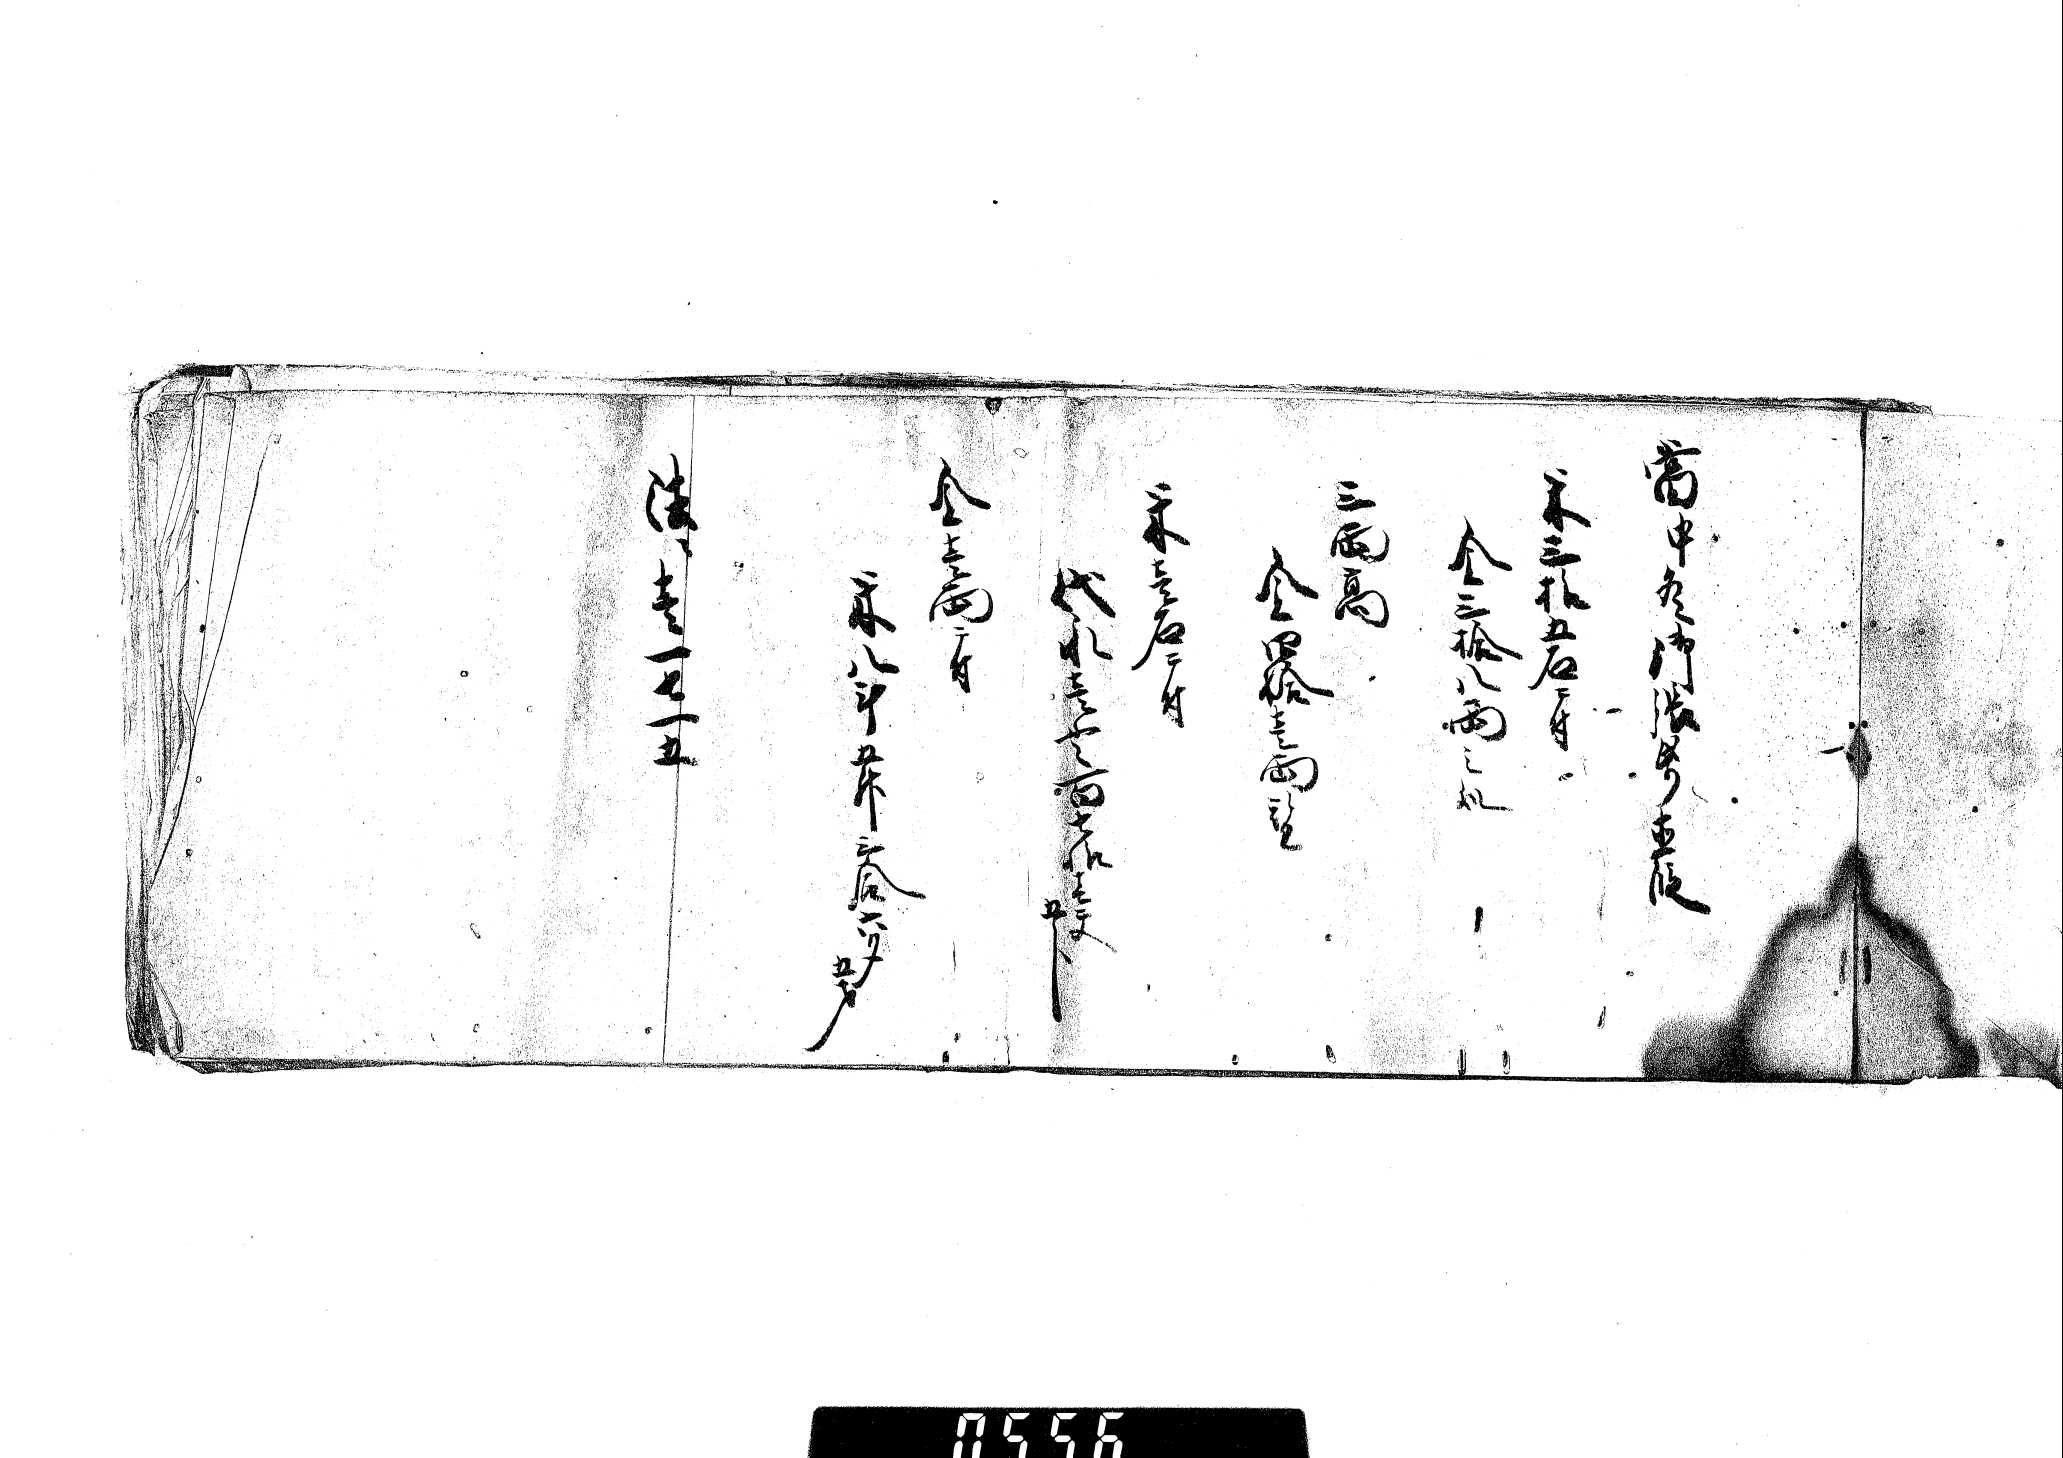 當中冬御張紙直段
米三拾五石ニ付
金三拾八両之札
三両高
金四拾壱両認
米壱石ニ付
代永壱〆百七拾壱文
五分
金壱両ニ付
米八斗五升三合六夕
五才
法壱一七一五
0556